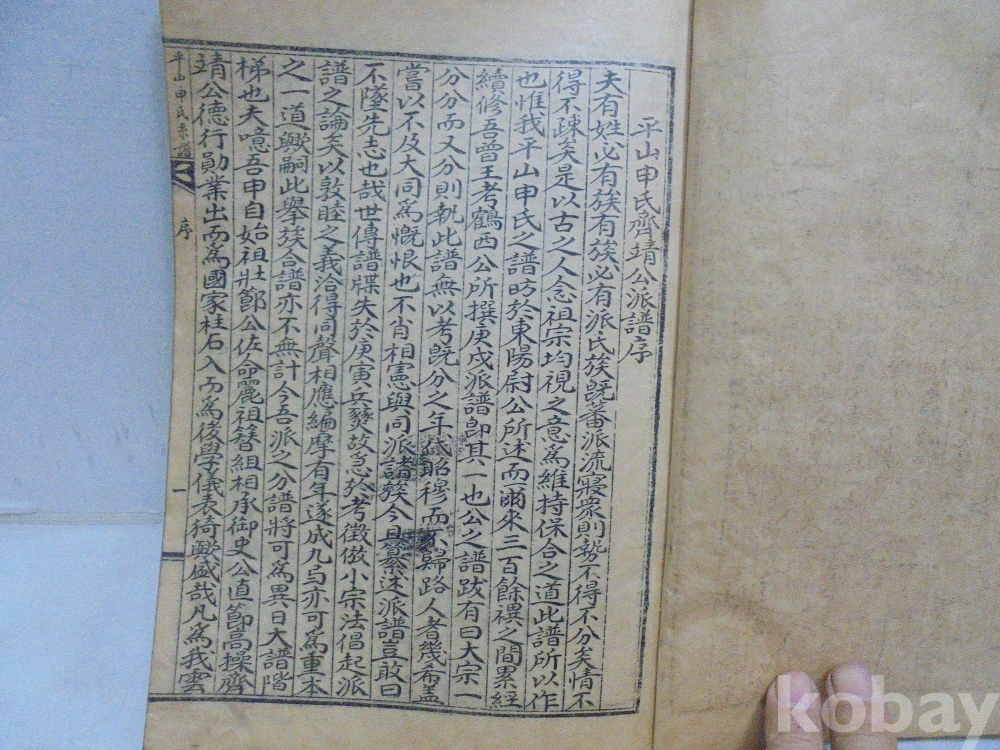 平山申氏齊靖公派譜序
夫有姓必有族有族必有派氏族旣蕃派流寢衆則勢不得不分矣情不
得不踈矣是以古之人念祖宗均視之意爲維持保合之道此譜所以作
也惟我平山申氏之譜昉於東陽尉公所述而爾來三百餘禩之間累經
續修吾曾王考鶴西公所撰庚戌派譜卽其一也公之譜跋有曰大宗一
分分而又分則執此譜無以考旣分之年 昭穆而不歸路人者幾希盖
嘗以不及大同爲慨恨也不肖相憲與同派諸族今且纂述派譜豈敢曰
不墜先志也哉世傳譜牒失於庚寅兵燹故急於考徵倣小宗法倡起派
譜之論矣以敦睦之義洽得同聲相應編摩有年遂成九 亦可爲重本
之一道歟嗣此擧族合譜亦不無計今吾派之分譜將可爲異日大譜階
梯也夫噫吾申自始祖壯節公佐命麗祖簪組相承御史公直節高操齊
靖公德行勛業出而爲國家柱石入而爲後學儀表猗歟盛哉凡爲我雲
平山申氏系譜
序
一
kobay